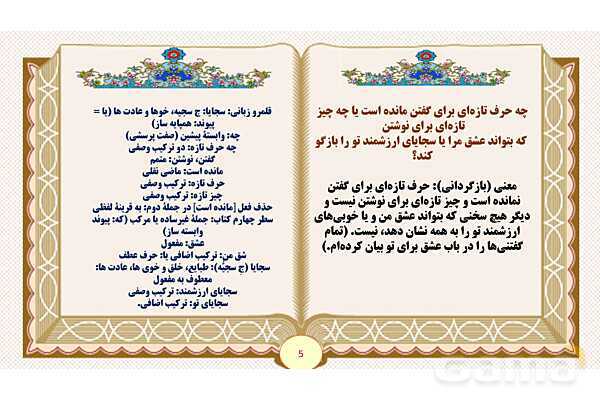 چه حرف تازه‌ای برای گفتن مانده است یا چه چیز
تازه‌ای برای نوشتن
که بتواند عشق مرا یا سجایای ارزشمند تو را بازگو
کند؟
معنی (بازگردانی): حرف تازه‌ای برای گفتن
نمانده است و چیز تازه‌ای برای نوشتن نیست و
دیگر هیچ سخنی که بتواند عشق من و یا خوبی‌های
ارزشمند تو را به همه نشان دهد، نیست. (تمام
گفتنی‌ها را در باب عشق برای تو بیان کرده‌ام.)
قلمرو زبانی: سجایا: ج سجیه، خوها و عادت ها (یا =
پیوند: همپایه ساز)
چه: وابستهٔ پیشین (صفت پرسشی)
چه حرف تازه: دو ترکیب وصفی
گفتن، نوشتن: متمم
مانده است: ماضی نقلی
حرف تازه: ترکیب وصفی
چیز تازه: ترکیب وصفی
حذف فعل [مانده است] در جملهٔ دوم: به قرینهٔ لفظی
سطر چهارم کتاب: جملهٔ غیرساده یا مرکب (که: پیوند
وابسته ساز)
عشق: مفعول
شق من: ترکیب اضافی یا: حرف عطف
سجایا (ج سجیّه): طبایع، خلق و خوی ها، عادت ها:
معطوف به مفعول
سجایای ارزشمند: ترکیب وصفی
سجایای تو: ترکیب اضافی.
5
Gama